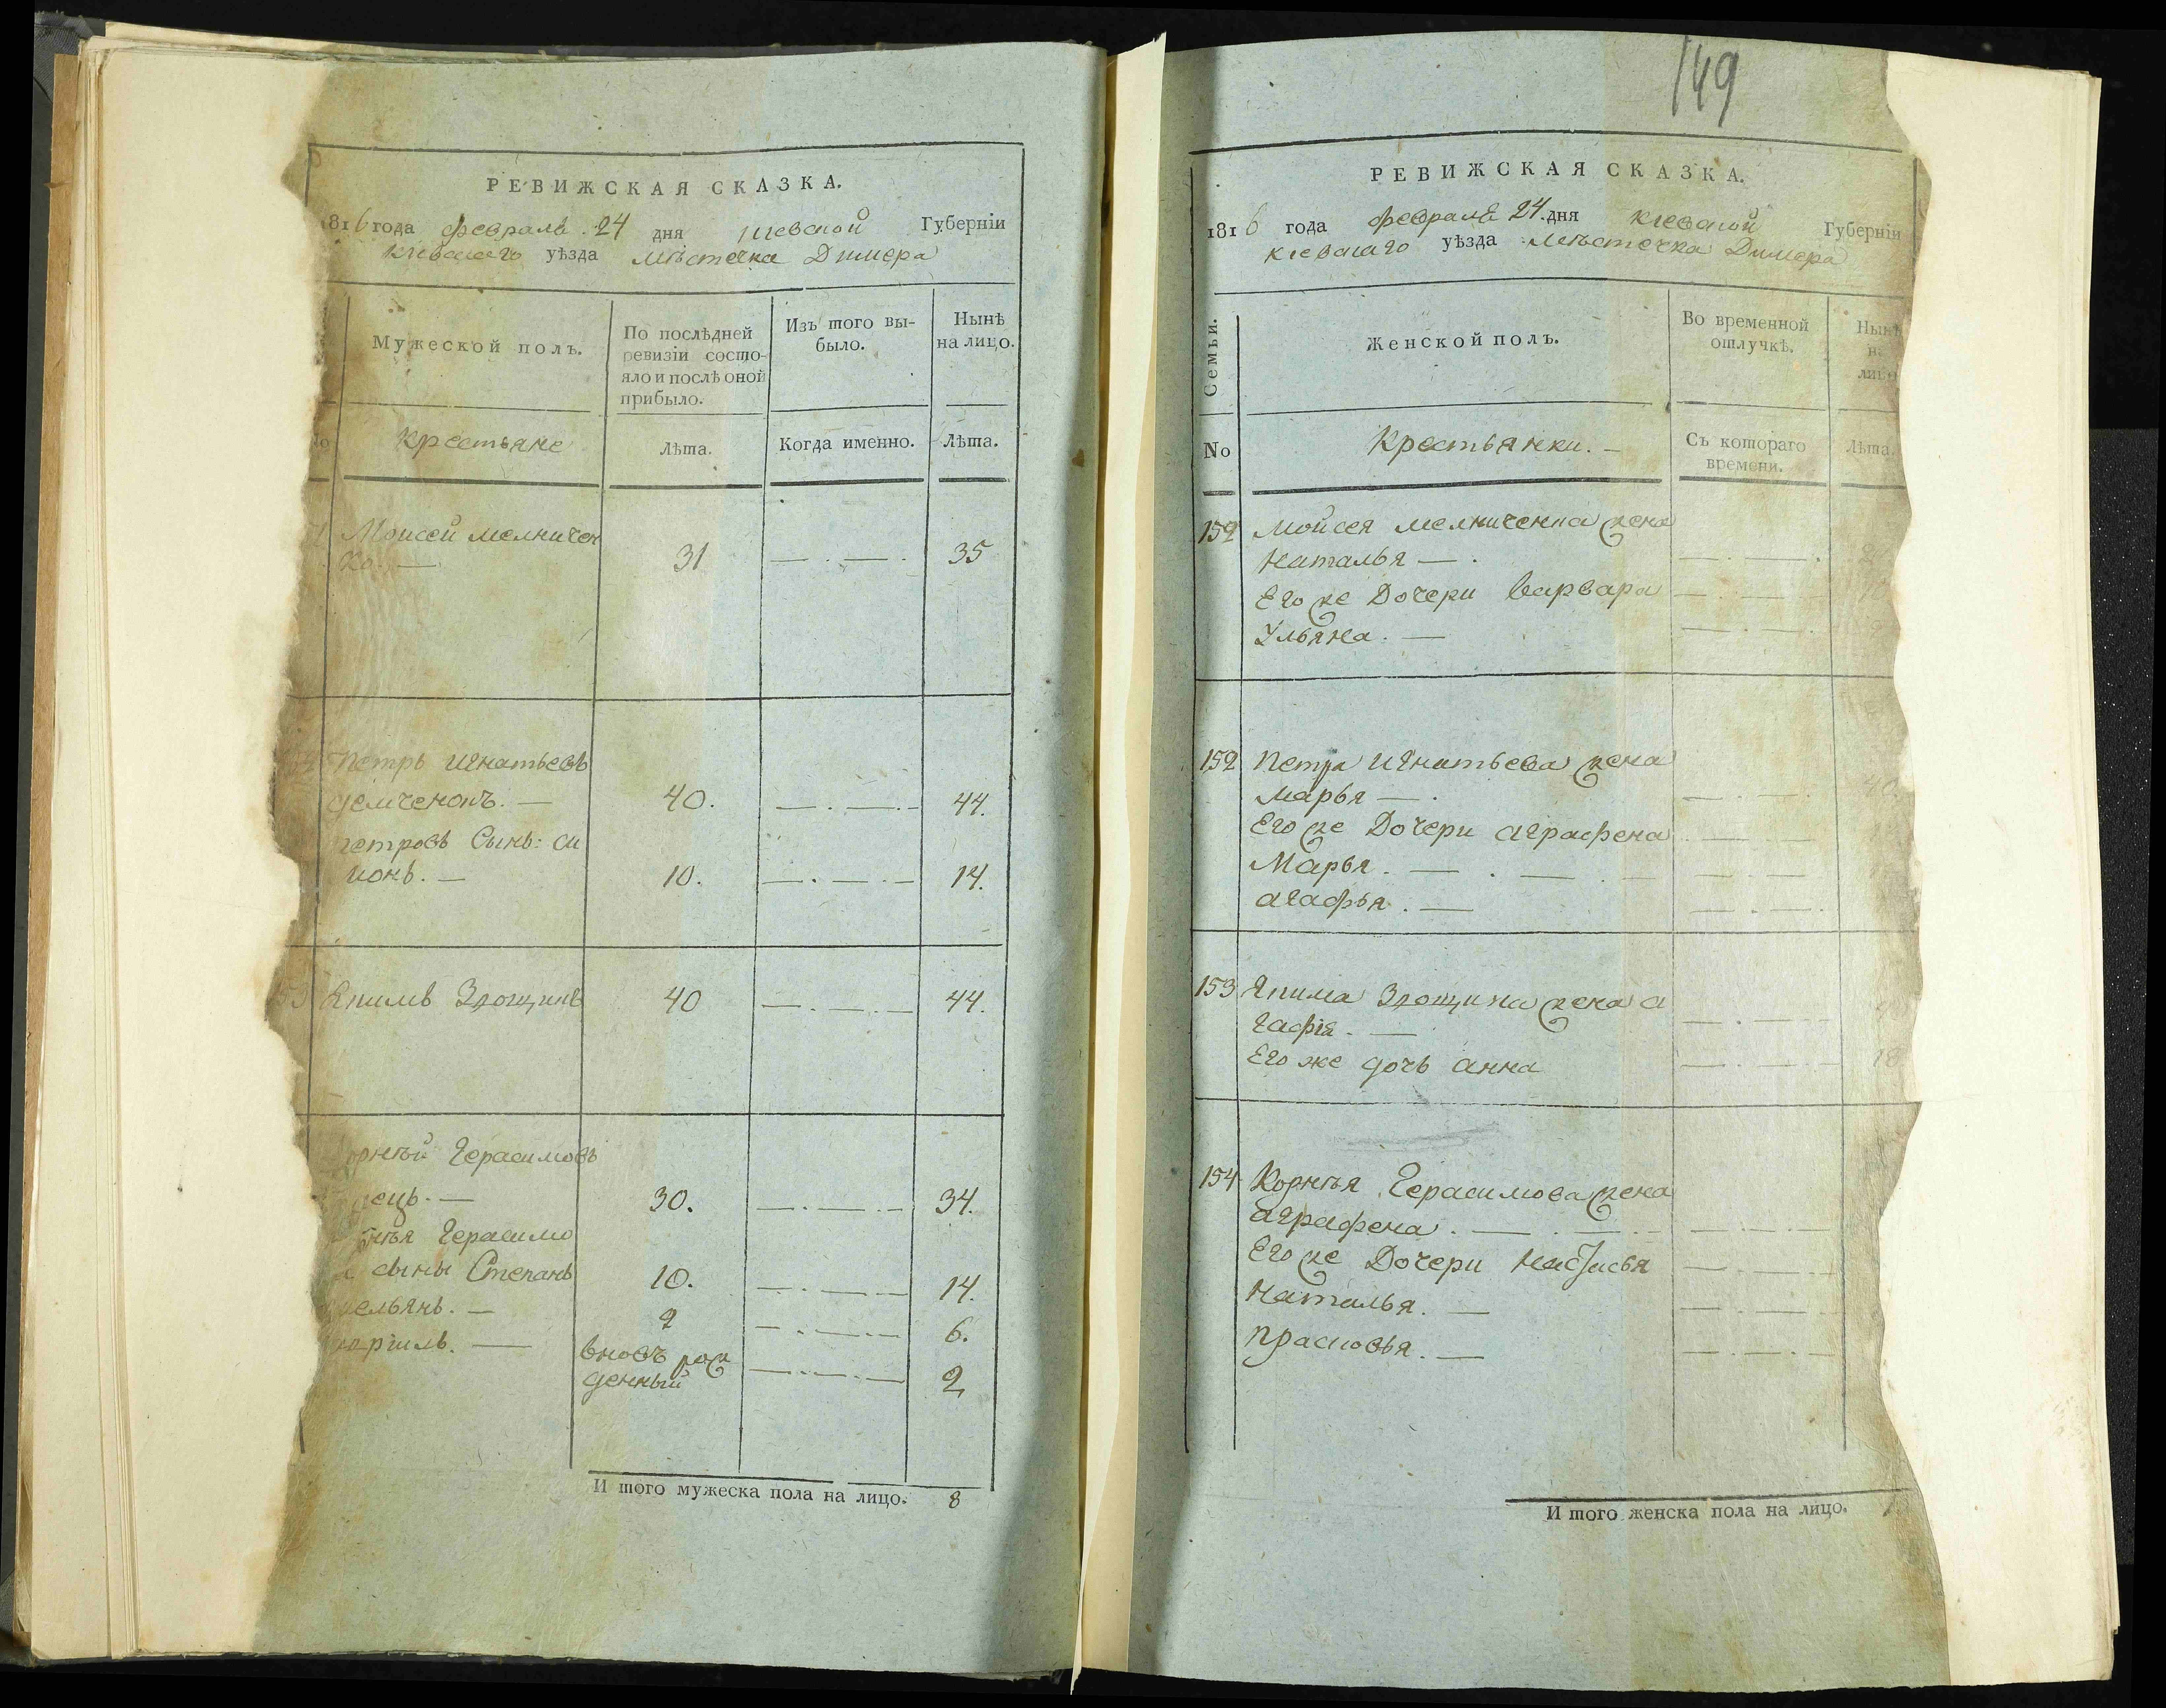 РЕВИЖСКАЯ СКАЗКА.
1816 года февраля 24 дня киевской Губерніи
киевскаго уѣзда мѣстечка Димера
Мужеской полъ.
По послѣдней
ревизіи состо-
яло и послѣ оной
прибыло.
Изъ того вы-
было.
Нынѣ
на лицо.
крестьяне
Лѣта.
Когда именно.
Лѣта.
Моисей мелничен
ко. — 31 35
Петръ игнатьевъ
демченокъ. — 40. 44.
петровъ Сынъ: си
монъ. — 10. 14.
Якимъ 40 44.
орнѣй герасимовъ
30. 34.
герасимо
сыны Степанъ 10. 14.
мельянъ. — 2 6.
вновь рож
денный 2
И того мужеска пола на лицо. 8
149
РЕВИЖСКАЯ СКАЗКА.
1816 года февраля 24. дня киевской Губерніи
киевскаго уѣзда мѣстечка Димера
Семьи.
Женской полъ.
Во временной
отлучкѣ.
Нынѣ
на
лицо
No
Крестьянки. —
Съ котораго
времени.
Лѣта.
152 мойсея мелниченка жена
Наталья — .
Его же Дочери варвара
Ульяна. —
152 петра игнатьева жена
марья — .
Его же Дочери аграфена
Марья. —
агафья. —
153 Якима жена а
гафія. —
Его же дочь анна 18
154 Корнѣя Герасимова жена
аграфена. —
Его же Дочери настасья
Наталья. —
прасковья. —
И того женска пола на лицо.